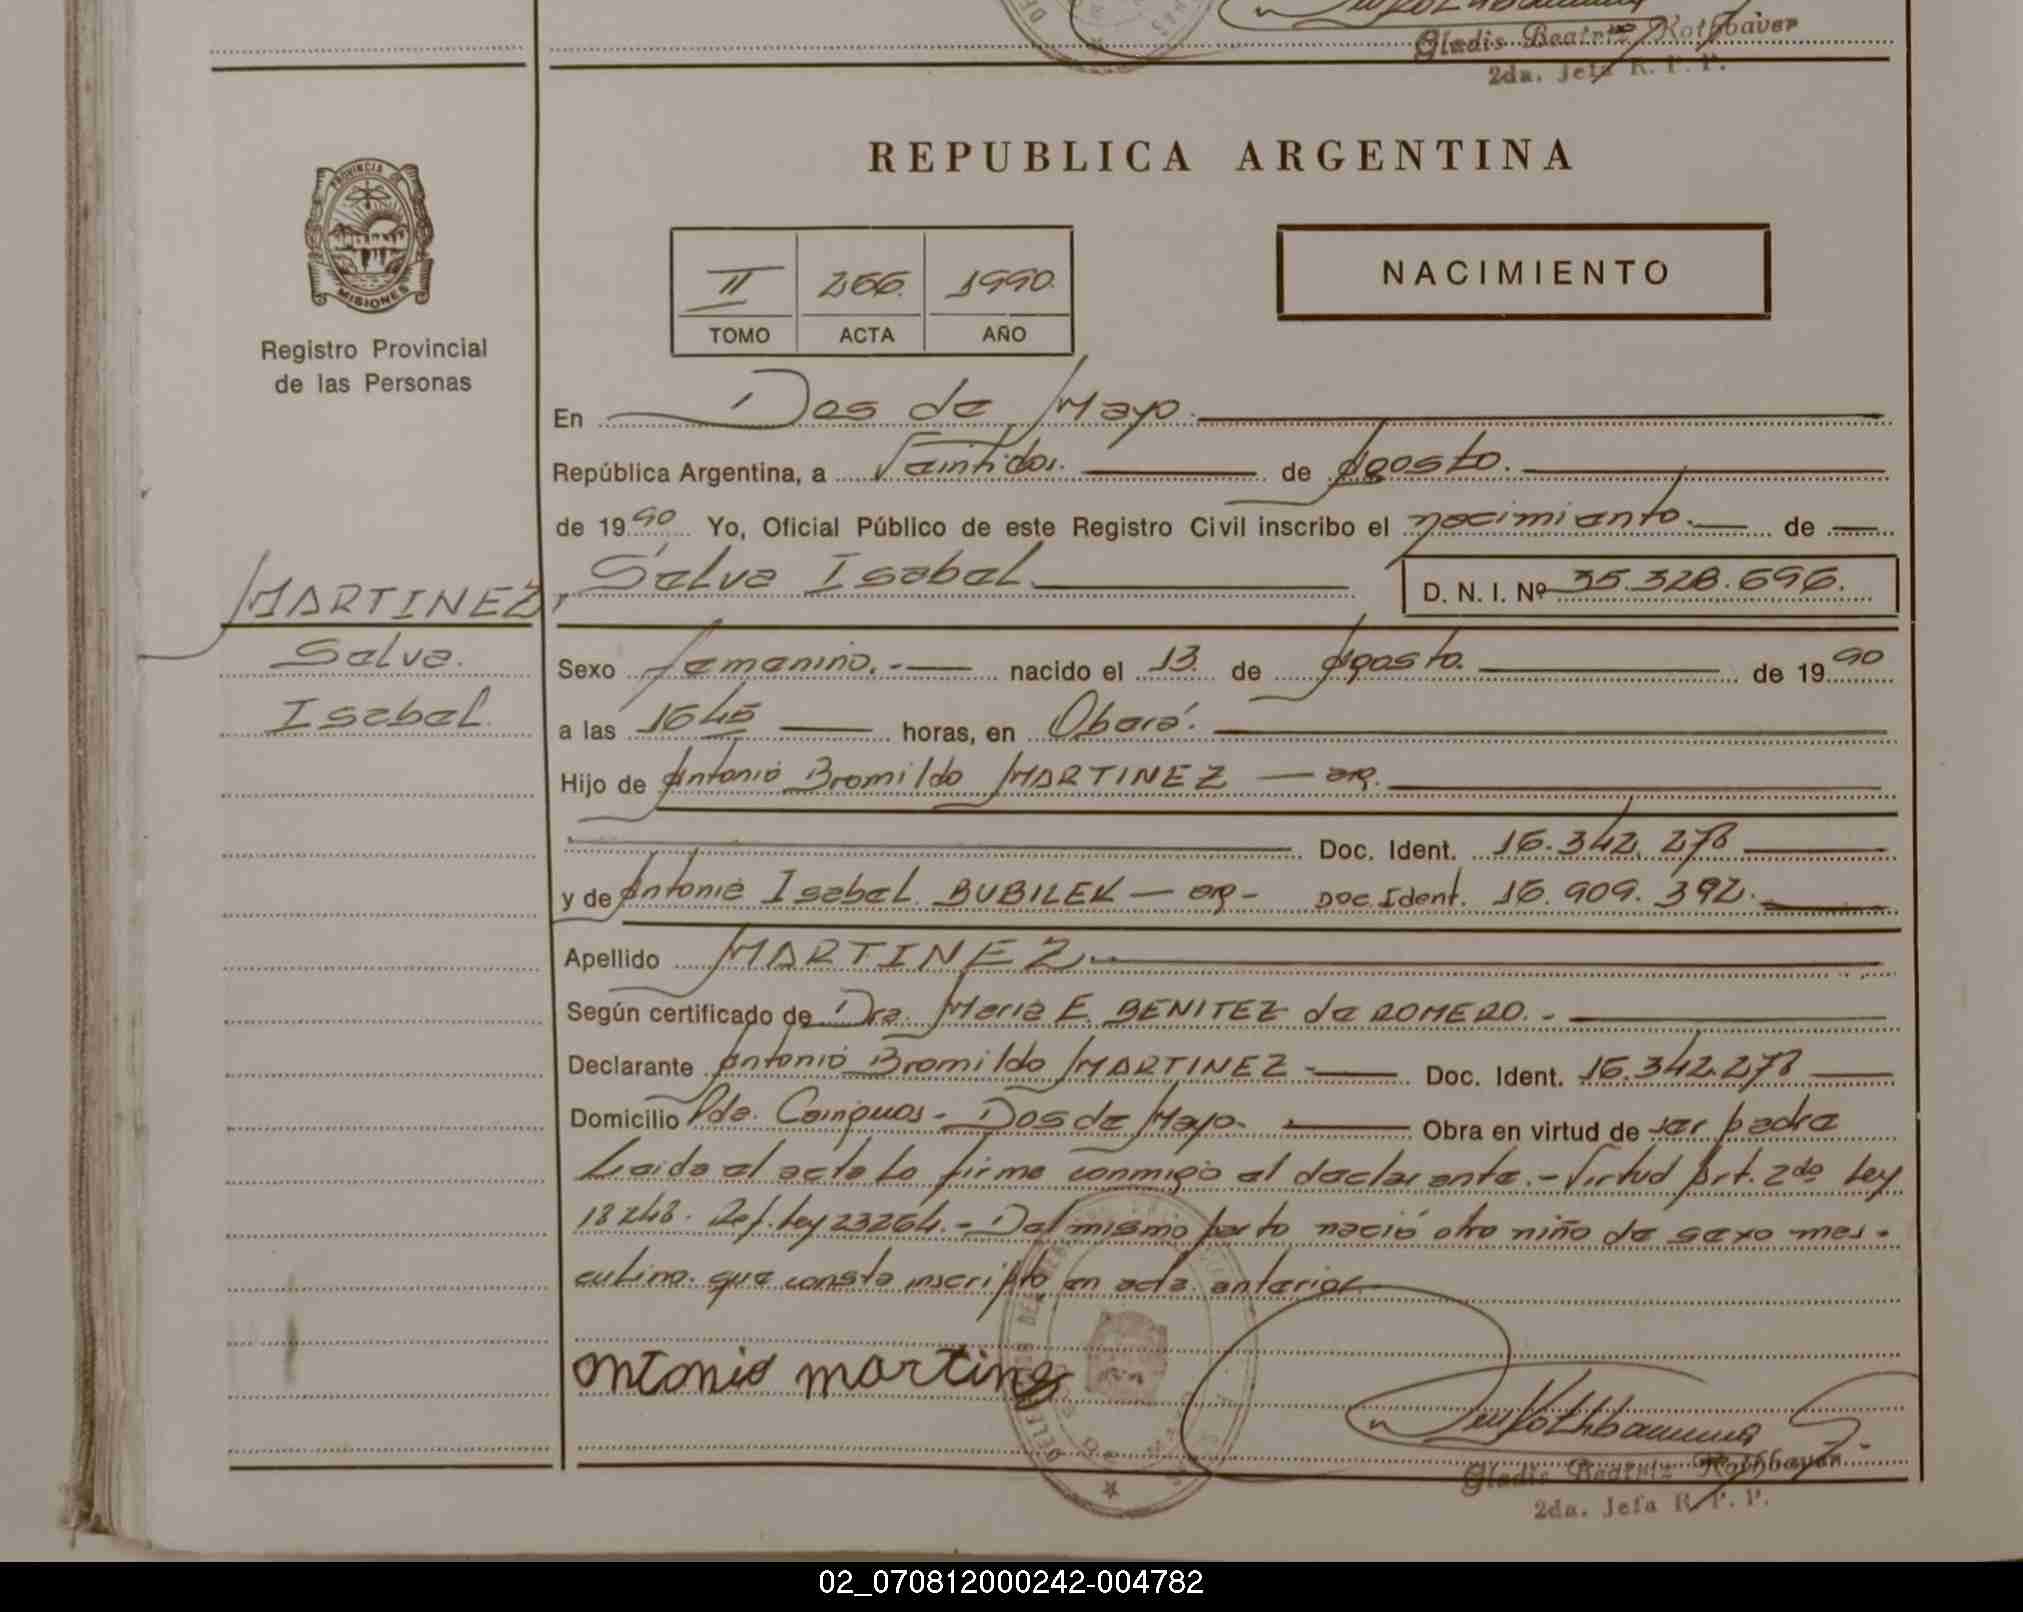 Gladis Beatriz Rothbaver
2da. Jefa R. P. P.
PROVINCIA
MISIONES
Registro Provincial
de las Personas
REPUBLICA ARGENTINA
II 266. 1990.
TOMO ACTA AÑO
NACIMIENTO
En Dos de Mayo.
República Argentina, a Veintidos. de Agosto.
de 1990 Yo, Oficial Público de este Registro Civil inscribo el nacimiento. de
MARTINEZ, Selva Isabel D. N. I. Nº 35.328.696.
Selva.
Isabel.
Sexo femenino.- nacido el 13. de Agosto. de 1990
a las 1645 horas, en Oberá.
Hijo de Antonio Bromildo MARTINEZ — arg.
Doc. Ident. 16.342.278
y de Antonia Isabel BUBILEK — arg - Doc Ident. 16.909.392.
Apellido MARTINEZ.
Según certificado de Dra. Maria E. BENITEZ de ROMERO. -
Declarante Antonio Bromildo MARTINEZ - Doc. Ident. 16.342.278
Domicilio Pde. Cainguas - Dos de Mayo. Obra en virtud de ser padre
Leida el acta la firma conmigo el declarante.- Virtud Art. 2do Ley
18248. Ref. Ley 23264.- Del mismo parto nació otro niño de sexo mas-
culino. que consta inscripto en acta anterior
antonio martinez
Gladis Beatriz Rothbaver
2da. Jefa R. P. P.
02_070812000242-004782